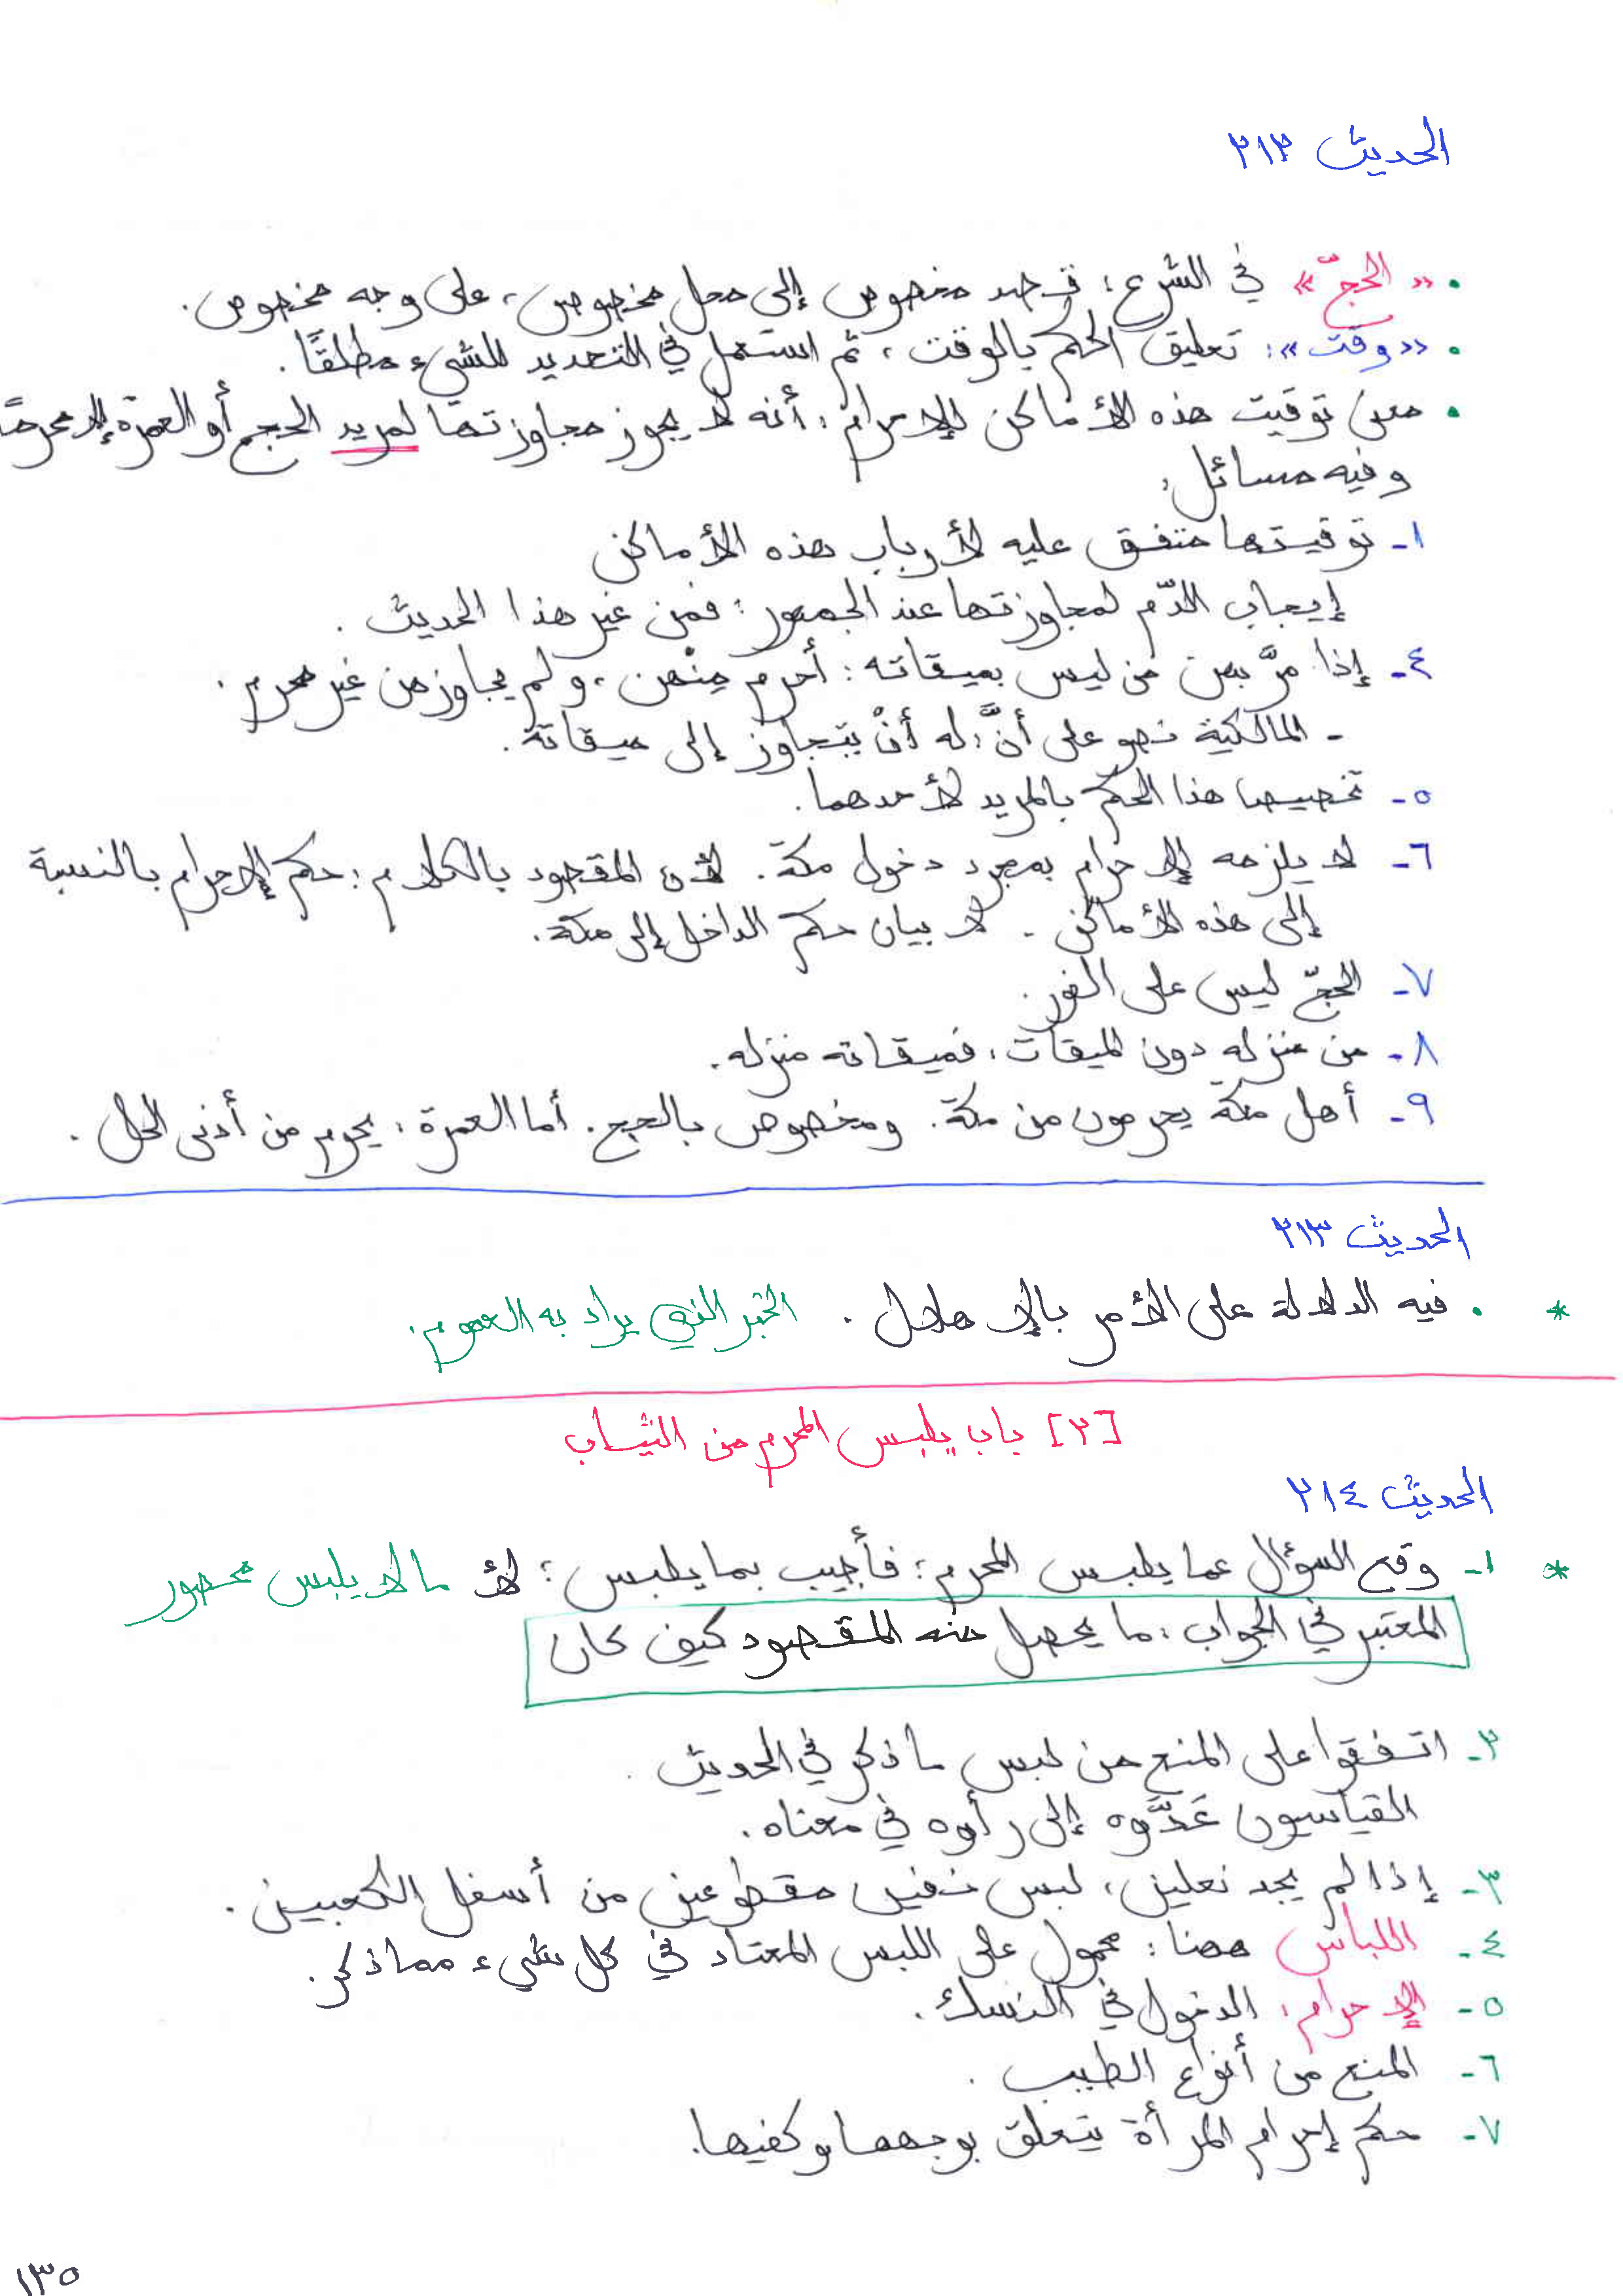 الحديث ٢١٢
• «الحجّ» في الشرع: قصد مخصوص إلى محل مخصوص، على وجه مخصوص.
• «وقّت»: تعليق الحكم بالوقت، ثم استعمل في التحديد للشيء مطلقًا.
• معنى توقيت هذه الأماكن للإحرام: أنه لا يجوز مجاوزتها لمريد الحج أو العمرة إلا محرمًا
وفيه مسائل:
١- توقيتها متفق عليه لأرباب هذه الأماكن
إيجاب الدّم لمجاوزتها عند الجمهور: فمن غير هذا الحديث.
٤- إذا مرَّ بهن من ليس بميقاته: أحرم منْهن، ولم يجاوزهن غير محرم.
- المالكية نصو على أنَّ له أنْ يتجاوز إلى ميقاتة.
٥- تخصيص هذا الحكم بالمريد لأحدهما.
٦- لا يلزمه الإحرام بمجرد دخول مكة. لأن المقصود بالكلام: حكم الإحرام بالنسبة
إلى هذه الأماكن. لا بيان حكم الداخل إلى مكة.
٧- الحجّ ليس على الفور.
٨- من منزله دون الميقات، فميقاته منزله.
٩- أهل مكة يحرمون من مكة. ومخصوص بالحج. أما العمرة: يحرم من أدنى الحل.
الحديث ٢١٣
* • فيه الدلالة على الأمر بالإهلال. الخبر الذي يراد به العموم.
[٢] باب يلبس المحرم من الثياب
الحديث ٢١٤
* ١- وقع السؤال عما يلبس المحرم: فأجيب بما يلبس؛ لأ ما لا يلبس محصور
المعتبر في الجواب: ما يحصل منه المقصود كيف كان
٢- اتفقوا على المنع من لبس ما ذكر في الحديث.
القياسيون عَدَّوه إلى رأوه في معناه.
٣- إذا لم يجد نعلين، لبس خفين مقطوعين من أسفل الكعبين.
٤- اللباس هنا: محمول على اللبس المعتاد في كل شيء مما ذكر.
٥- الإحرام: الدخول في النسك.
٦- المنع من أنواع الطيب.
٧- حكم إحرام المرأة يتعلق بوجهها وكفيها.
١٣٥